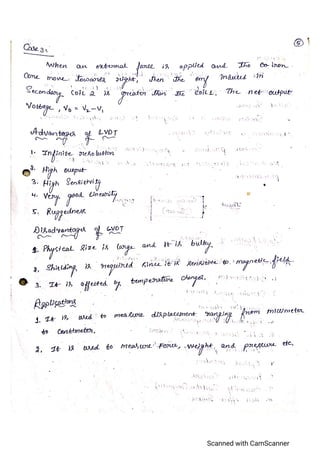 5
Case 3:
When an external force is applied and the Co iron
Core move towards right, then the emf induced in
Secondary Coil 2 is greater than the Coil 1. The net output
Voltage, V₀ = V₂-V₁
Advantages of LVDT
1. Infinite resolution
2. High output
3. High Sensitivity
4. Very good linearity
5. Ruggedness
Disadvantages of LVDT
1. Physical Size is large and it is bulky.
2. Shielding is required Since it is sensitive to magnetic field
3. It is affected by temperature changes.
Applications
1. It is used to measure displacement ranging from millimeter
to Centimeter.
2. It is used to measure Force, weight and pressure etc,
Scanned with CamScanner